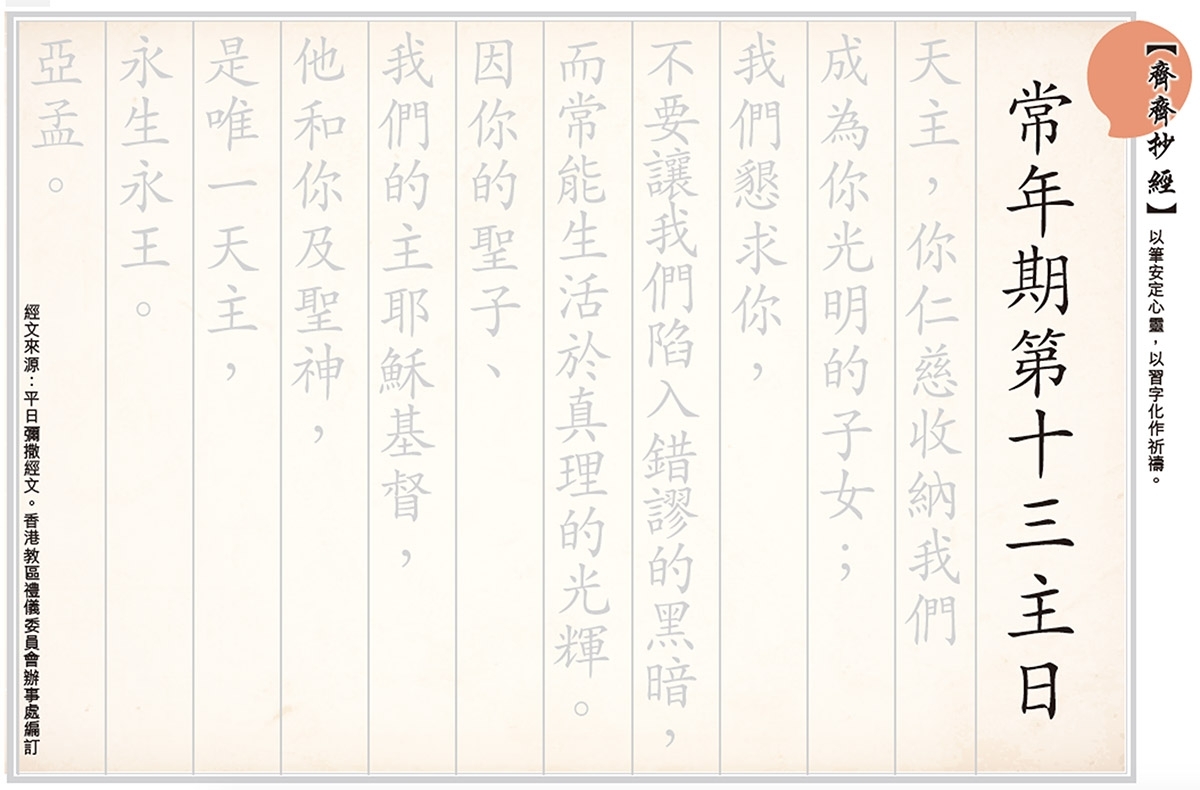 【齊齊抄經】以筆安定心靈，以習字化作祈禱。
常年期第十三主日
天主，你仁慈收納我們
成為你光明的子女；
我們懇求你，
不要讓我們陷入錯謬的黑暗，
而常能生活於真理的光輝。
因你的聖子、
我們的主耶穌基督，
他和你及聖神，
是唯一天主，
永生永王。
亞孟。
經文來源：平日彌撒經文。香港教區禮儀委員會辦事處編訂